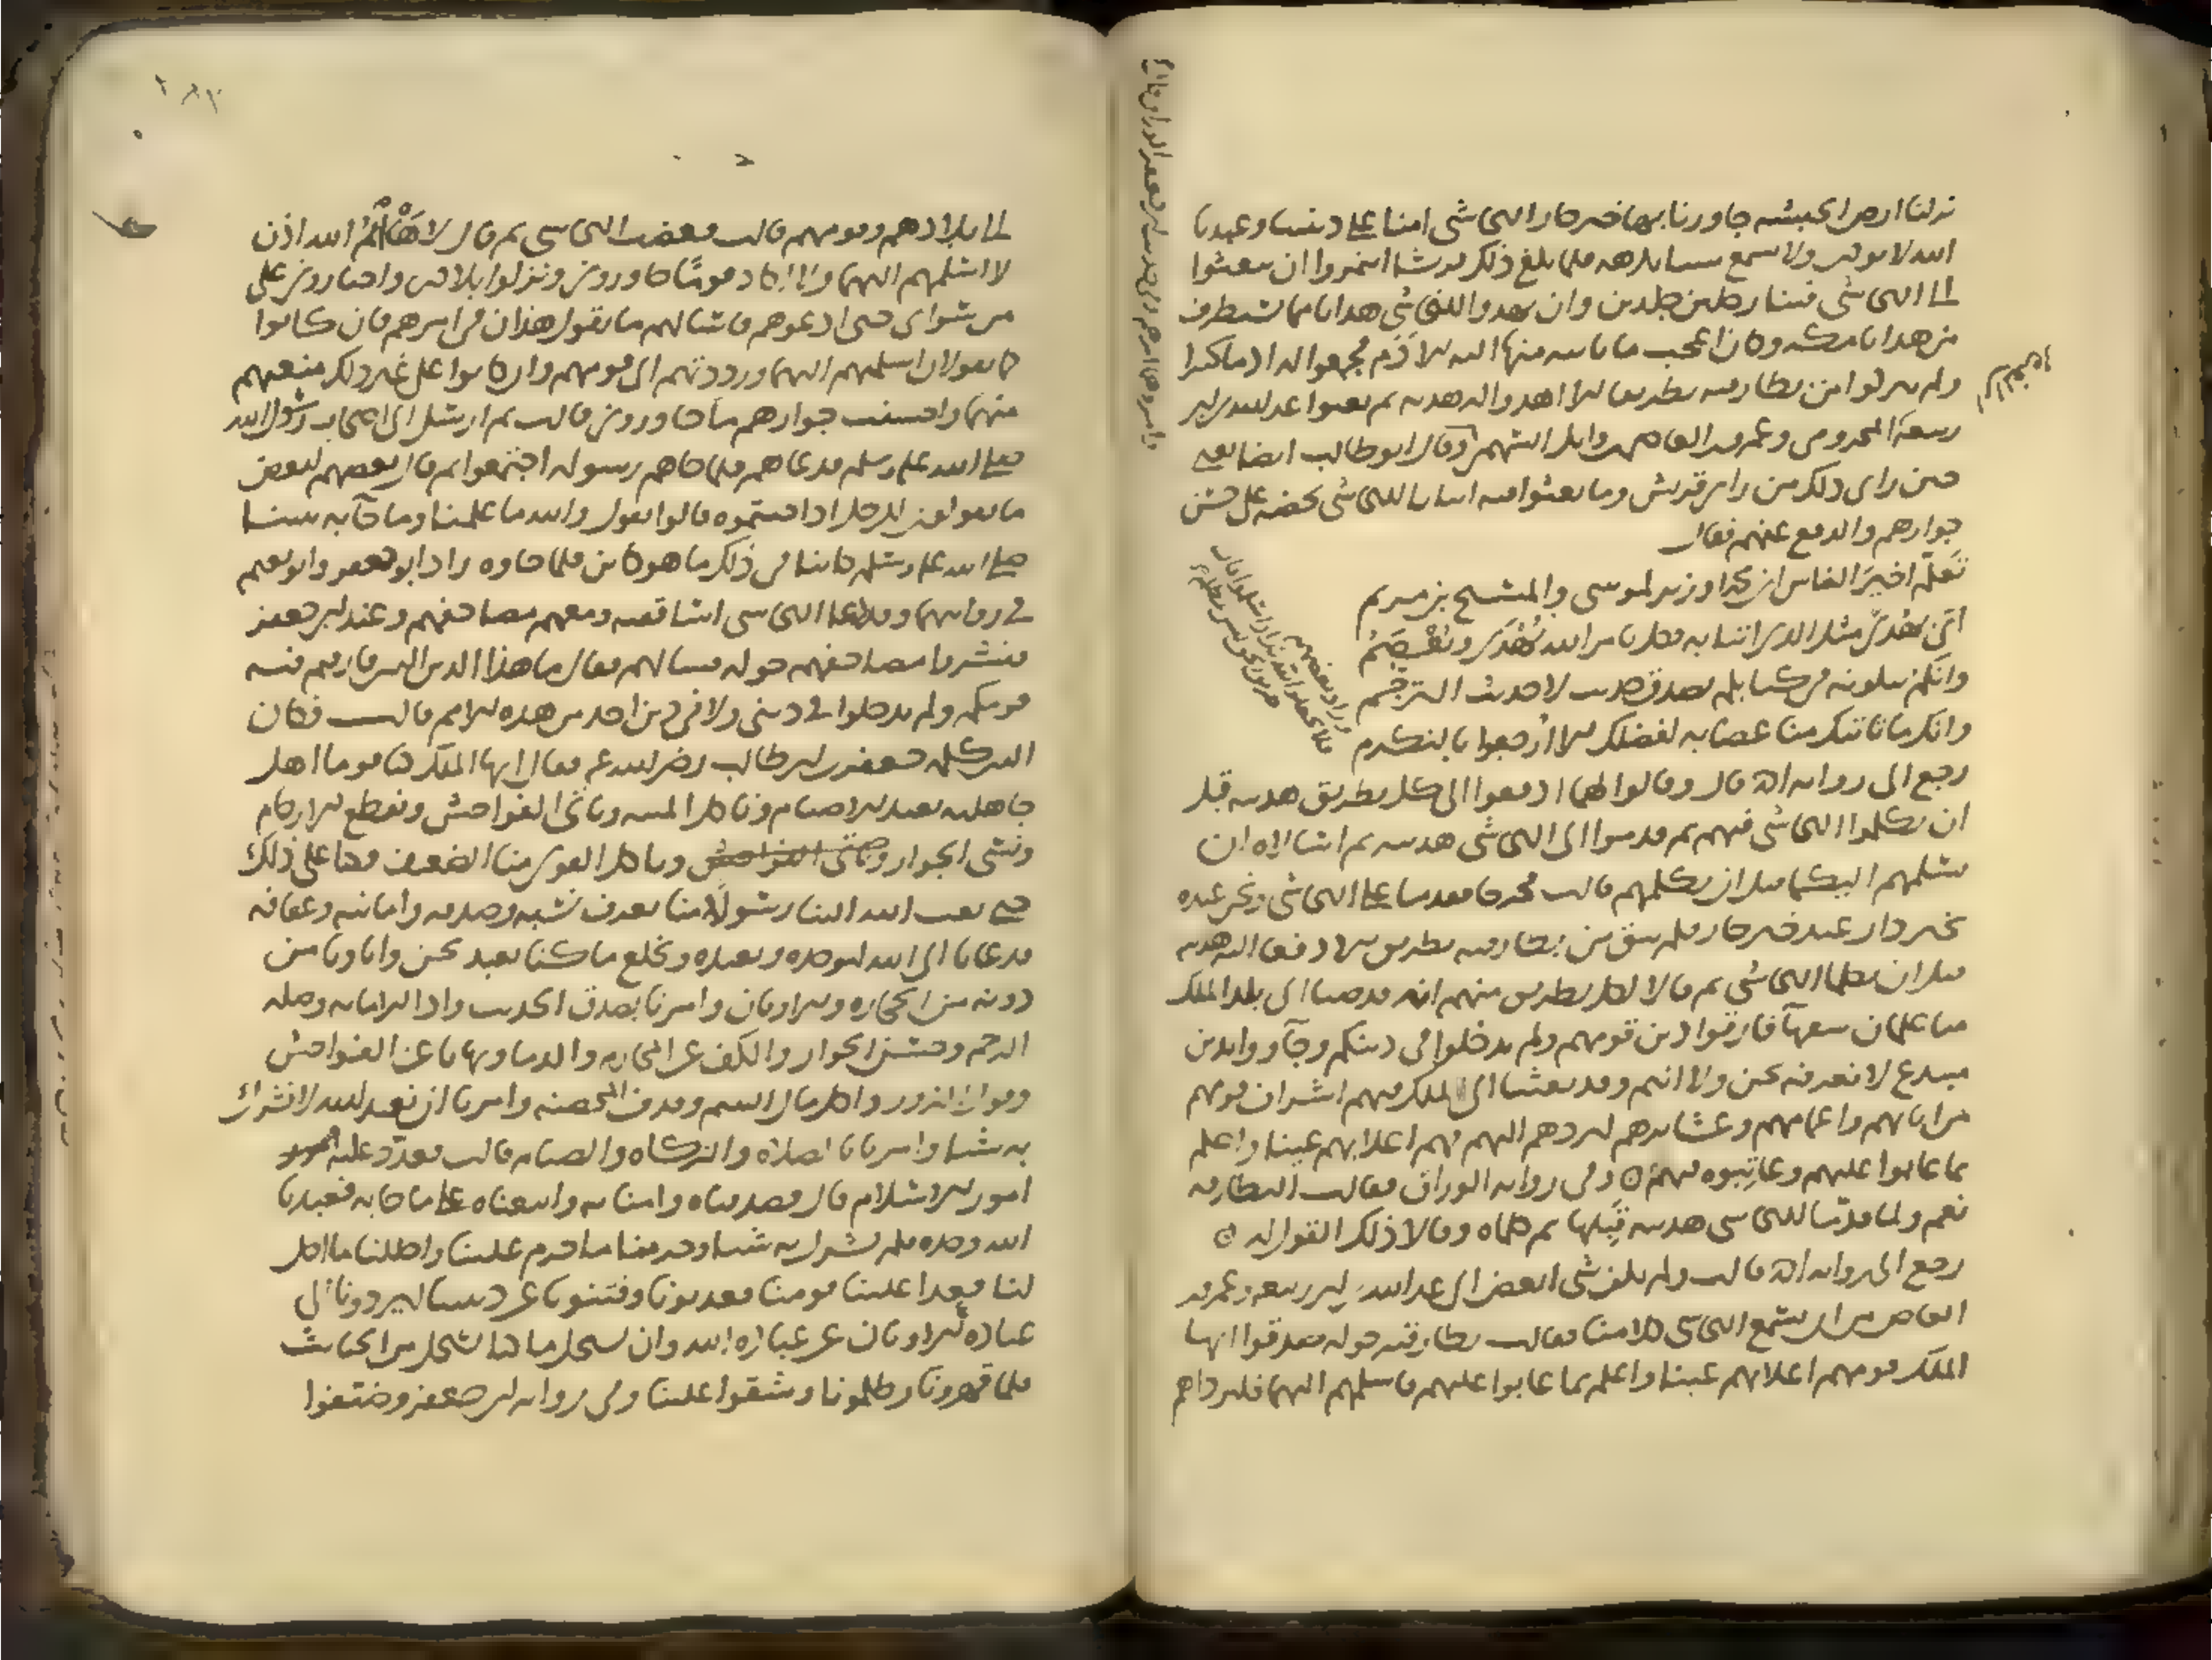 نزلنا ارض الحبشه جاورنا بها خير جار النجاشى امنا على ديننا وعبدنا
الله لا نوذى ولا نسمع شيئا نكرهه فلما بلغ ذلك قريشا ائتمروا ان يبعثوا
الى النجاشى فينا رجلين جلدين وان يهدوا للنجاشى هدايا مما يستطرف
من هدايا مكه وكان اعجب ما ياتيه منها اليه الادم فجمعوا له ادما كثيرا
ولم يتركوا من بطارقته بطريقا الا اهدوا له هديه ثم بعثوا عبد الله بن ابى
ربيعه المخزومى وعمرو بن العاص بن وايل السهمى وقال ابو طالب ايضا يعنى
حين راى ذلك من راى قريش وما بعثوا فيه ابياتا للنجاشى يحضه على حسن
جوارهم والدفع عنهم فقال
تعلم اخير الناس ان محمدا وزير لموسى والمسيح بن مريم
اتى بهدى مثل الذى اتيا به فكل بامر الله يهدى ويعصم
وانكم تتلونه فى كتابكم بصدق حديث لا حديث الترجم
وانك ما تاتيك منا عصابه لفضلك الا ارجعوا بالتكرم
رجع الى روايه ابن اسحق قال وقالوا لهما ادفعوا الى كل بطريق هديته قبل
ان تكلموا النجاشى فيهم ثم قدموا الى النجاشى هديته ثم اسالاه ان
يسلمهم اليكما قبل ان يكلمهم قالت فخرجا فقدما على النجاشى ونحن عنده
بخير دار عند خير جار فلم يبق من بطارقته بطريق الا دفعا اليه هديته
قبل ان يكلما النجاشى ثم قالا لكل بطريق منهم انه قد صبا الى بلد الملك
منا غلمان سفهآ فارقوا دين قومهم ولم يدخلوا فى دينكم وجآووا بدين
مبتدع لا نعرفه نحن ولا انتم وقد بعثنا الى الملك فيهم اشراف قومهم
من ابائهم واعمامهم وعشايرهم ليردهم اليهم فهم اعلا بهم عينا واعلم
بما عابوا عليهم وعاتبوه فيهم وفى روايه الوراق فقالت البطارقه
نعم ولما قدما للنجاشى هديته قبلها ثم كلماه وقالا ذلك القول له
رجع الى روايه ابن اسحق قالت ولم يكن شى ابغض الى عبد الله بن ابى ربيعه وعمرو بن
العاص من ان يسمع النجاشى كلامنا فقالت بطارقته حوله صدقوا ايها
الملك قومهم اعلا بهم عينا واعلم بما عابوا عليهم فاسلمهم اليهما فليرداهم
١٨٢
الى بلادهم وقومهم قالت فغضب النجاشى ثم قال لا هآ الله اذن
لا اسلمهم اليهما ولا اكاد قوما جاورونى ونزلوا بلادى واختارونى على
من سواى حتى ادعوهم فاسالهم ما يقول هذان فى امرهم فان كانوا
كما يقولان اسلمتهم اليهما ورددتهم الى قومهم وان كانوا على غير ذلك منعتهم
منهما واحسنت جوارهم ما جاورونى قالت ثم ارسل الى اصحاب رسول الله
صلى الله عليه وسلم فدعاهم فلما جاهم رسوله اجتمعوا ثم قال بعضهم لبعض
ما تقولون للرجل اذا جيتموه قالوا نقول والله ما علمنا وما جآ به نبينا
صلى الله عليه وسلم كاينا فى ذلك ما هو كاين فلما جاوه زاد ابو جعفر وابو نعيم
فى روايتهما وقد دعا النجاشى اساقفته ومعهم مصاحفهم وعند ابى جعفر
فنشروا مصاحفهم حوله فسالهم فقال ما هذا الدين الذى فارقتم فيه
قومكم ولم تدخلوا فى دينى ولا فى دين احد من هذه الامم قالت فكان
الذى كلمه جعفر بن ابى طالب رضى الله عنه فقال ايها الملك كنا قوما اهل
جاهليه نعبد الاصنام وناكل الميته وناتى الفواحش ونقطع الارحام
ونسى الجوار وناتى الفواحش وياكل القوى منا الضعيف فكنا على ذلك
حتى بعث الله الينا رسولا منا نعرف نسبه وصدقه وامانته وعفافه
فدعانا الى الله لنوحده ونعبده ونخلع ما كنا نعبد نحن واباونا من
دونه من الحجاره والاوثان وامرنا بصدق الحديث وادا الامانه وصله
الرحم وحسن الجوار والكف عن المحارم والدما ونهانا عن الفواحش
وقول الزور واكل مال اليتيم وقذف المحصنه وامرنا ان نعبد الله لا نشرك
به شيا وامرنا بالصلاه والزكاه والصيام قالت فعدد عليه
امور الاسلام قال فصدقناه وامنا به واتبعناه على ما جا به فعبدنا
الله وحده فلم نشرك به شيا وحرمنا ما حرم علينا واحللنا ما احل
لنا فعدا علينا قومنا فعذبونا وفتنونا عن ديننا ليردونا الى
عباده الاوثان عن عباده الله وان نستحل ما كنا نستحل من الخبايث
فلما قهرونا وظلمونا وشقوا علينا وفى روايه ابى جعفر وضيقوا